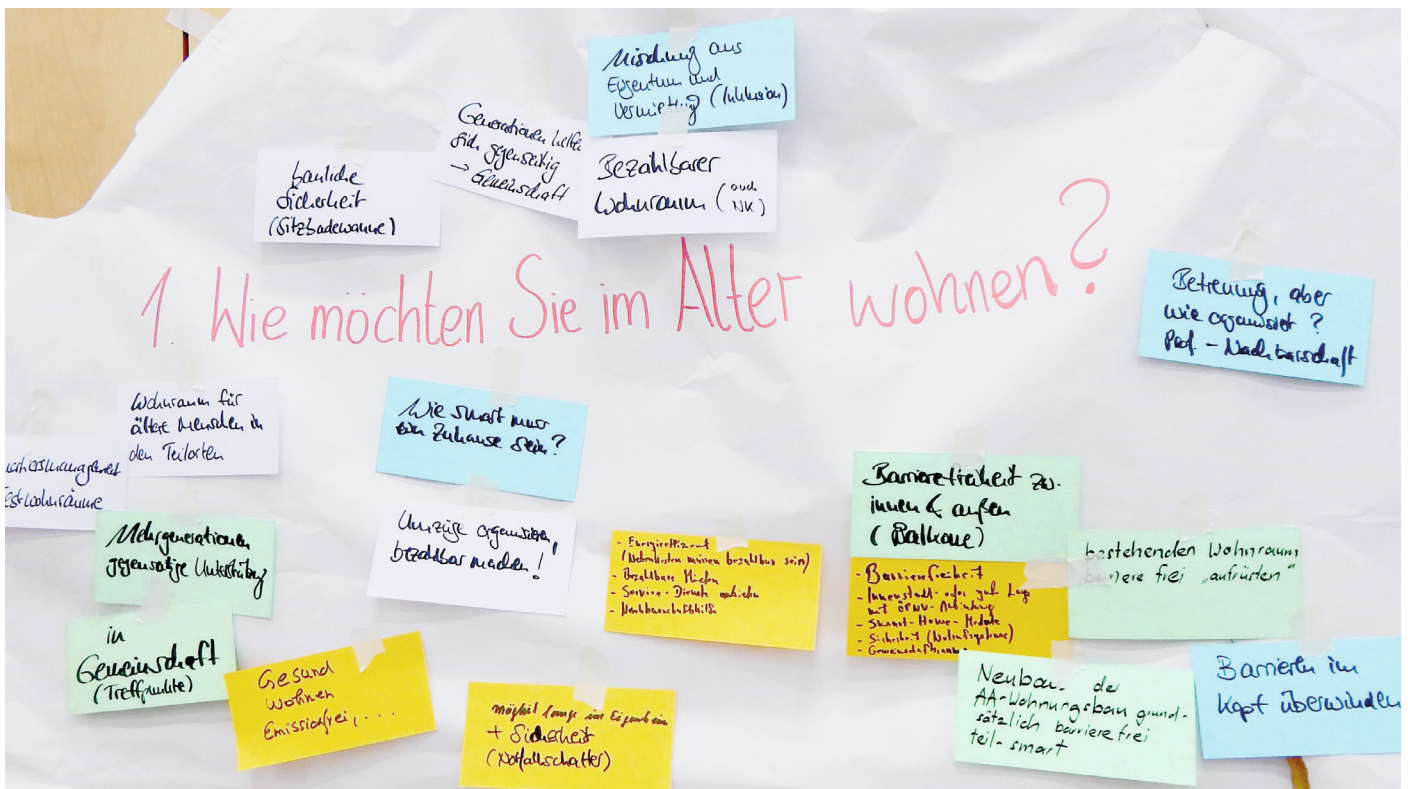 Mischung aus
Eigentum und
Vermietung (Inklusion)
Generationen helfen
sich gegenseitig
→ Gemeinschaft
Bezahlbarer
Wohnraum (auch NK)
bauliche
Sicherheit
(Sitzbadewanne)
1. Wie möchten Sie im Alter wohnen?
Betreuung, aber
wie organisiert?
Prof. - Nachbarschaft
Wohnraum für
ältere Menschen in
den Teilorten
Wie smart muss
ein Zuhause sein?
Mehrgenerationen
gegenseitige Unterstützung
Umzüge organisieren,
bezahlbar machen!
- Energieeffizient
(Nebenkosten müssen bezahlbar sein)
- Bezahlbare Mieten
- Service-Dienste anbieten
- Nachbarschaftshilfe
Barrierefreiheit zw.
innen & außen
(Balkone)
- Barrierefreiheit
- Innenstadt- oder gute Lage
mit ÖPNV-Anbindung
- Smart-Home-Module
- Sicherheit (Notrufsysteme)
bestehenden Wohnraum
barriere frei „aufrüsten"
in
Gemeinschaft
(Treffpunkte)
Gesund
wohnen
Emissionfrei, ...
möglichst lange im Eigenheim
+ Sicherheit
(Notfallschalter)
Neubau der
AA-Wohnungsbau grund-
sätzlich barrierefrei
teil-smart
Barrieren im
Kopf überwinden